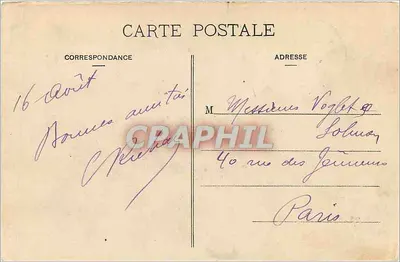 CARTE POSTALE
CORRESPONDANCE
ADRESSE
16 Août
Bonnes amitiés
M Messieurs Voglet &
40 rue des Jeûneurs
Paris
CPAPHIL